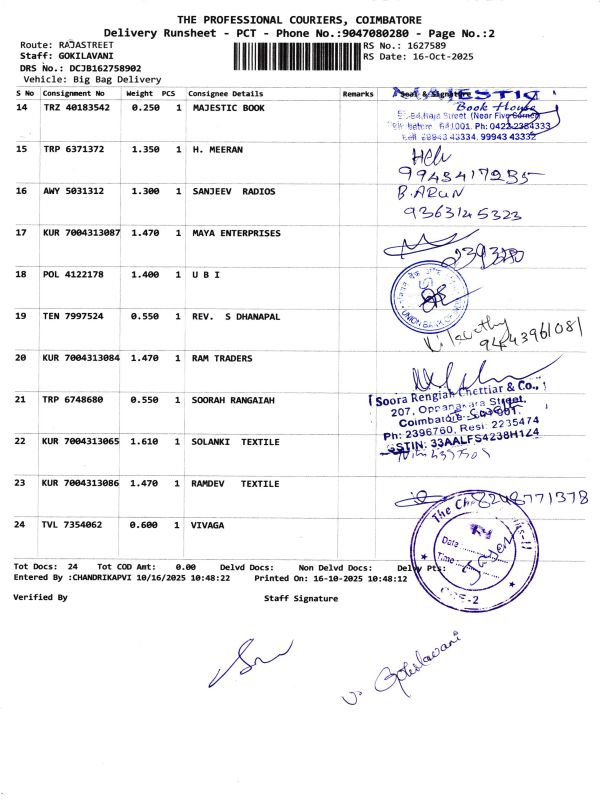 THE PROFESSIONAL COURIERS, COIMBATORE
Delivery Runsheet - PCT - Phone No.:9047080280 - Page No.:2
Route: RAJASTREET
RS No.: 1627589
Staff: GOKILAVANI
RS Date: 16-Oct-2025
DRS No.: DCJB162758902
Vehicle: Big Bag Delivery
S No Consignment No Weight PCS Consignee Details Remarks Seal & Signature
14 TRZ 40183542 0.250 1 MAJESTIC BOOK
MAJESTIC
Book House
Raja Street (Near Five Corner)
641001. Ph: 0422 2384333
43334, 99943 43332
15 TRP 6371372 1.350 1 H. MEERAN
9943417235
16 AWY 5031312 1.300 1 SANJEEV RADIOS
B. ARUN
9363145323
17 KUR 7004313087 1.470 1 MAYA ENTERPRISES
18 POL 4122178 1.400 1 U B I
UNION BANK OF
19 TEN 7997524 0.550 1 REV. S DHANAPAL
94443961081
20 KUR 7004313084 1.470 1 RAM TRADERS
21 TRP 6748680 0.550 1 SOORAH RANGAIAH
Soora Rengiah Chettiar & Co.,
207, Oppanakara Street,
Coimbatore
Ph: 2396760, Resi: 2235474
GSTIN: 33AALFS4238H1Z4
22 KUR 7004313065 1.610 1 SOLANKI TEXTILE
23 KUR 7004313086 1.470 1 RAMDEV TEXTILE
8248771378
24 TVL 7354062 0.600 1 VIVAGA
The
Date
Time
CBE-2
Tot Docs: 24 Tot COD Amt: 0.00 Delvd Docs: Non Delvd Docs: Delvy Pts:
Entered By :CHANDRIKAPVI 10/16/2025 10:48:22 Printed On: 16-10-2025 10:48:12
Verified By Staff Signature
V. Gokilavani